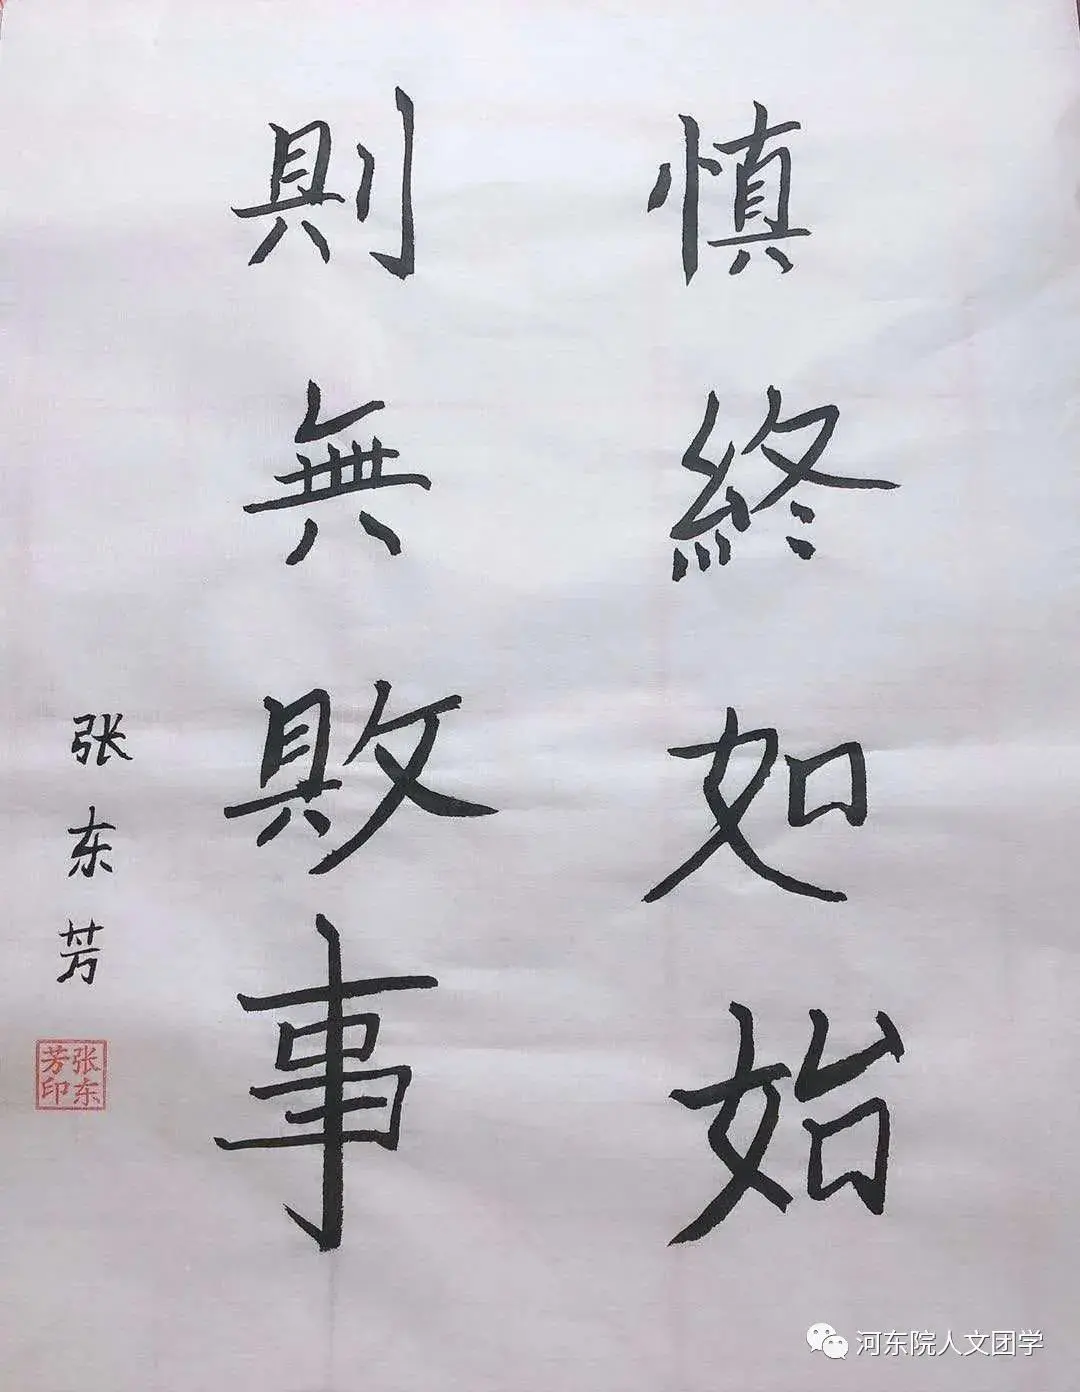 慎終如始
則無敗事
张东芳
张东
芳印
河东院人文团学